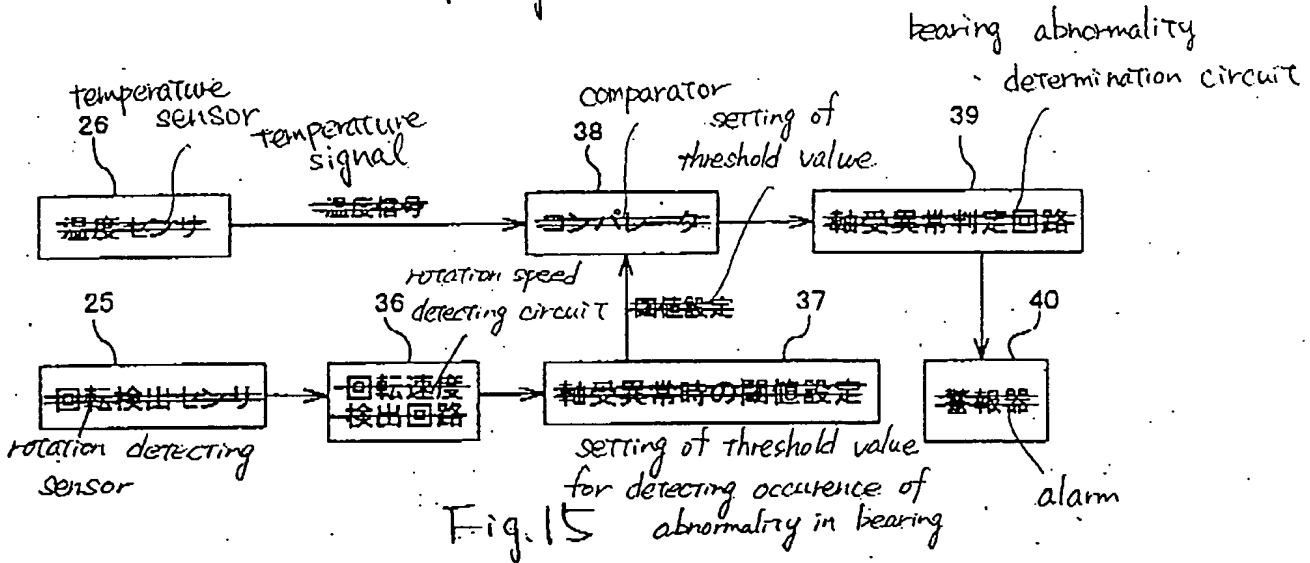 bearing abnormality
determination circuit
temperature
sensor
26
temperature
signal
comparator
38
setting of
threshold value
39
温度センサ
温度信号
コンパレータ
軸受異常判定回路
25
36
rotation speed
detecting circuit
閾値設定
37
40
回転検出センサ
回転速度
検出回路
軸受異常時の閾値設定
警報器
rotation detecting
sensor
setting of threshold value
for detecting occurence of
abnormality in bearing
alarm
Fig.15